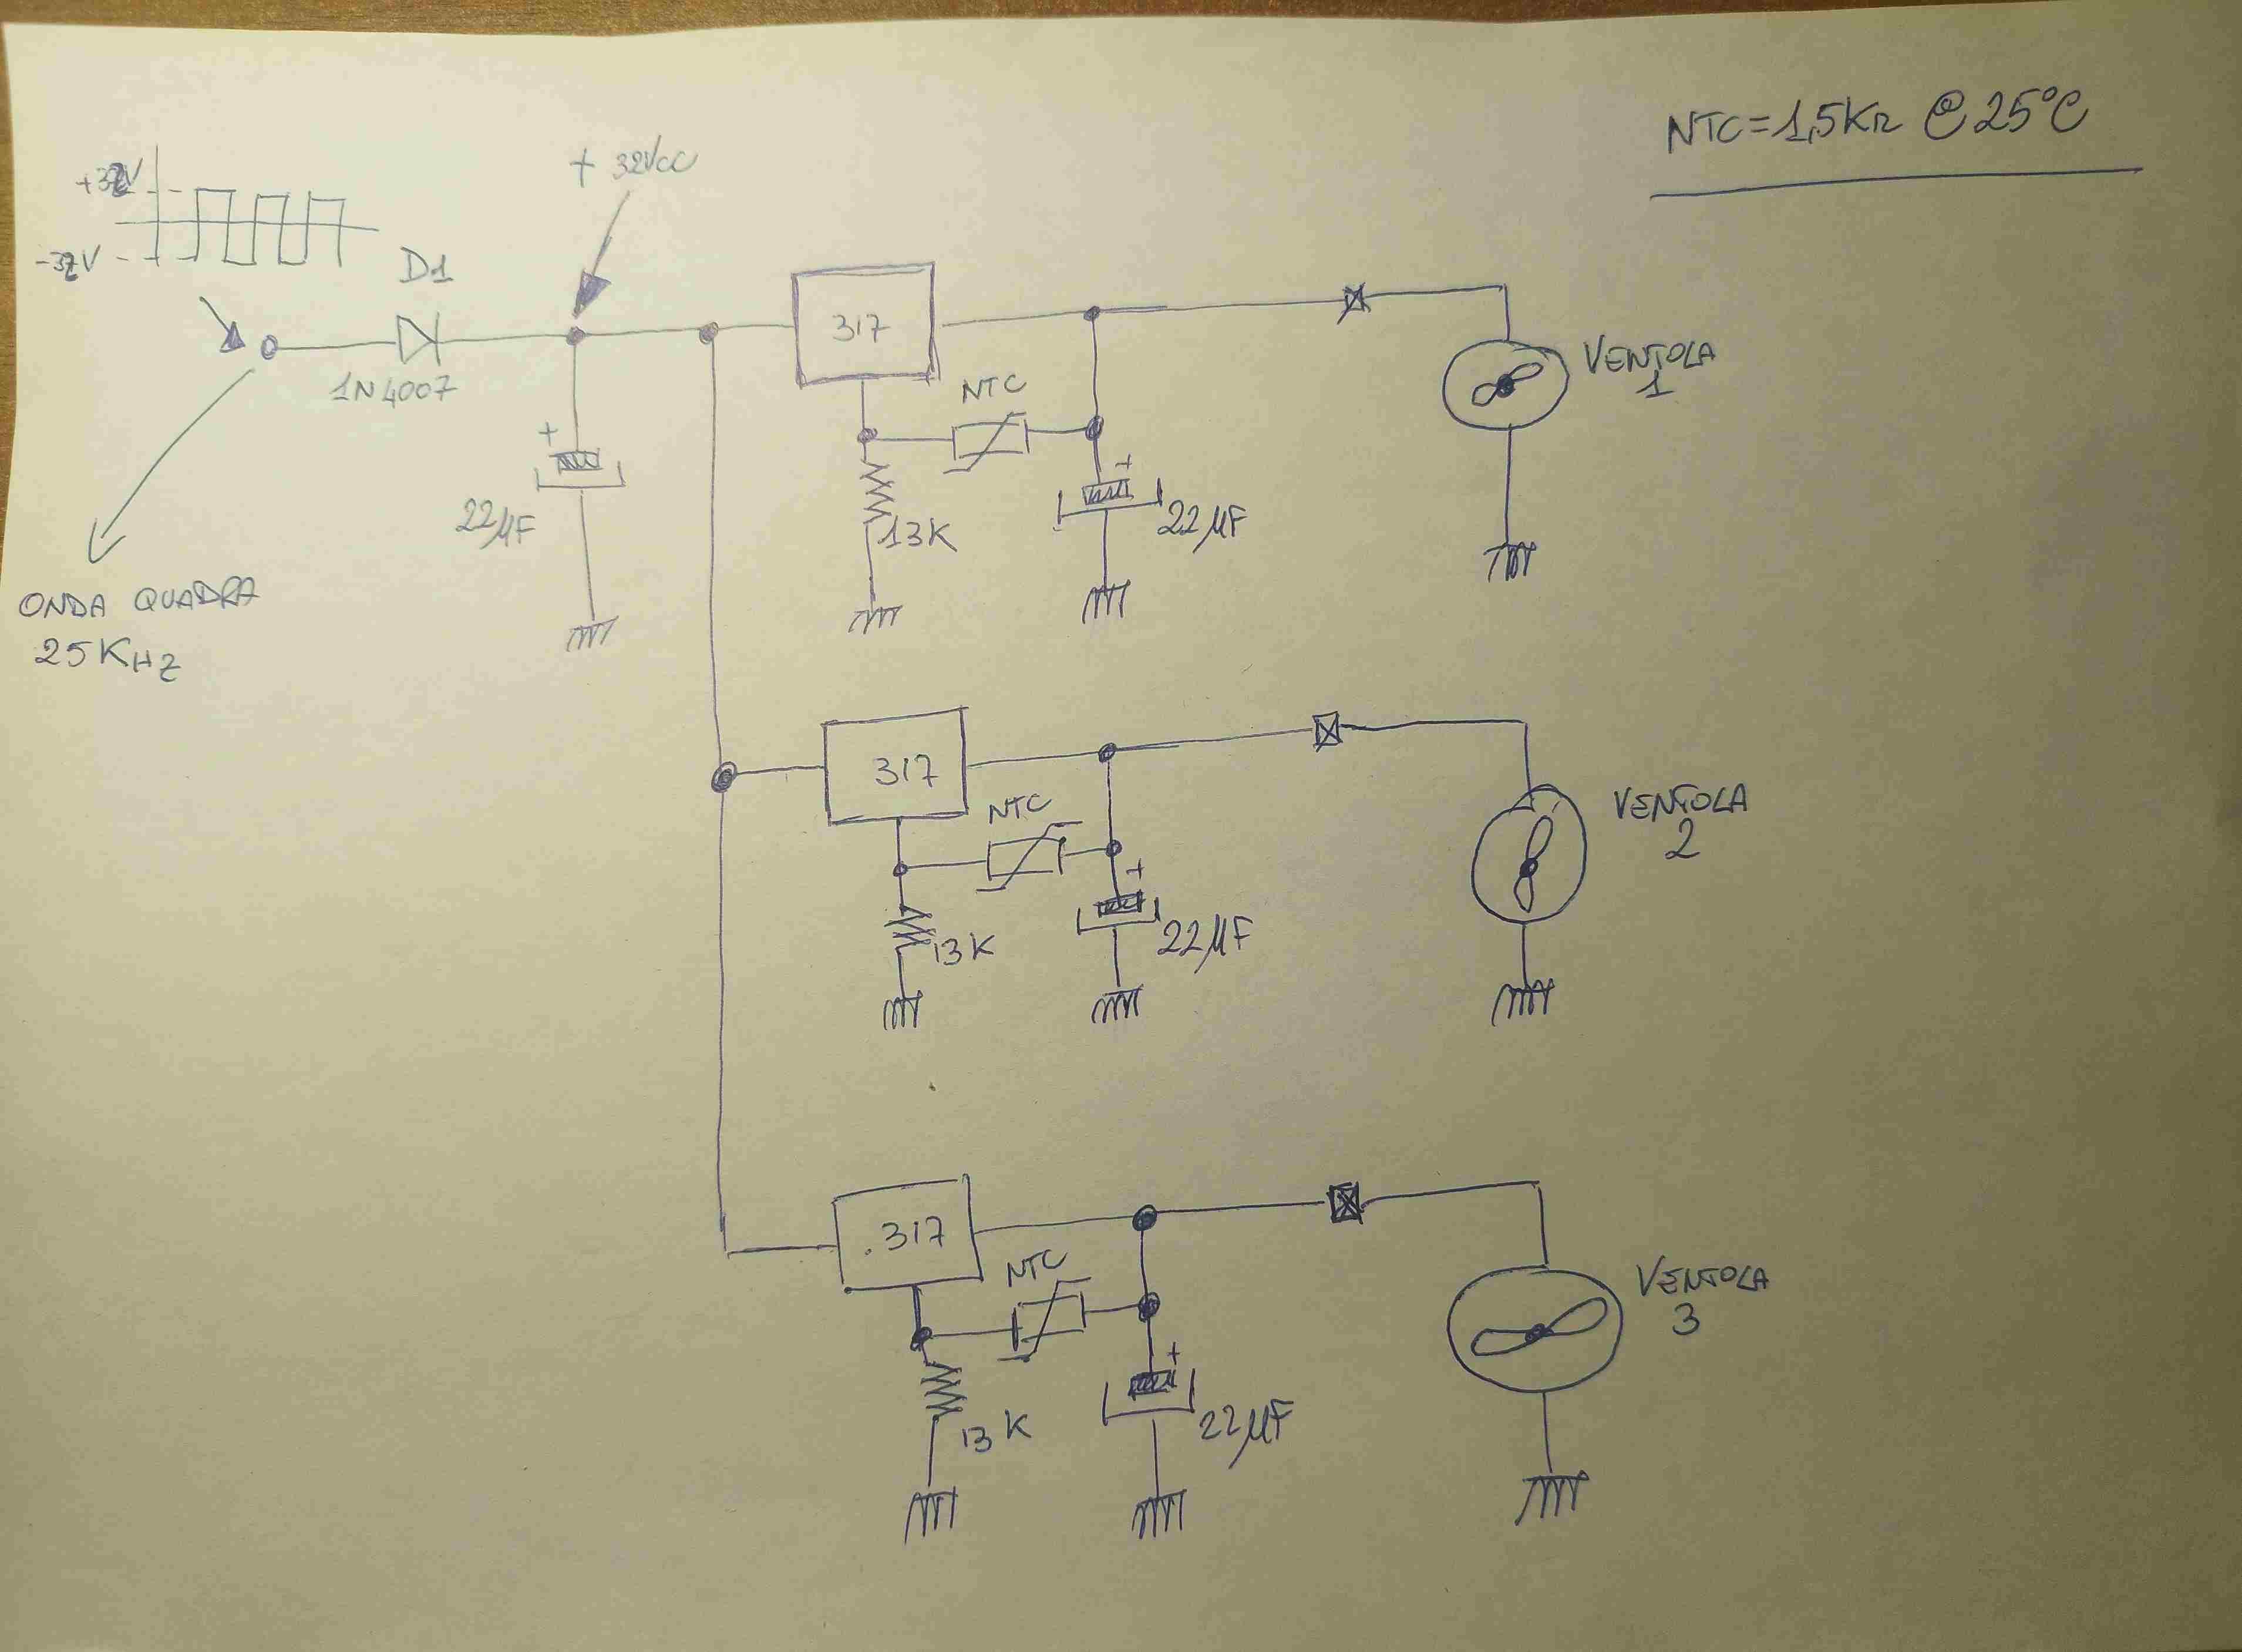 NTC=1,5KΩ @ 25°C
+32VCC
+32V
-32V
D1
1N4007
+
22µF
ONDA QUADRA
25KHZ
317
NTC
13K
+
22µF
VENTOLA
1
317
NTC
13K
+
22µF
VENTOLA
2
.317
NTC
13K
+
22µF
VENTOLA
3